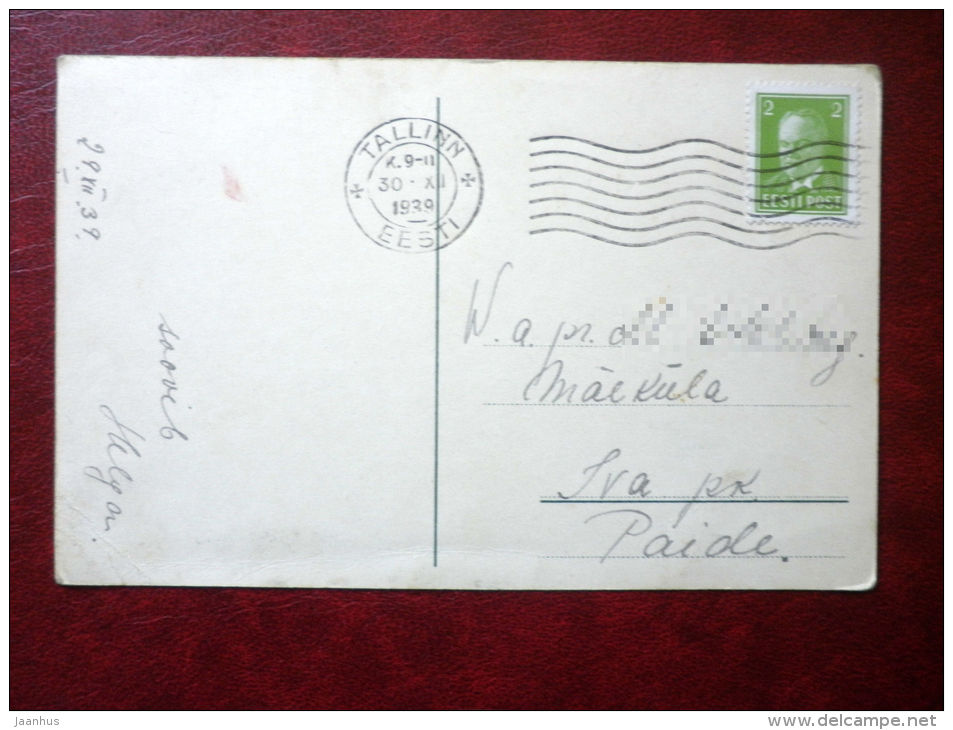 29.XII.39.
soovib
Helga.
TALLINN
K. 9-11
30 · XII
1939
EESTI
2 2
EESTI POST
W. a. pr.
Mäeküla
Iva pk.
Paide.
jaanhus
delcampe.net